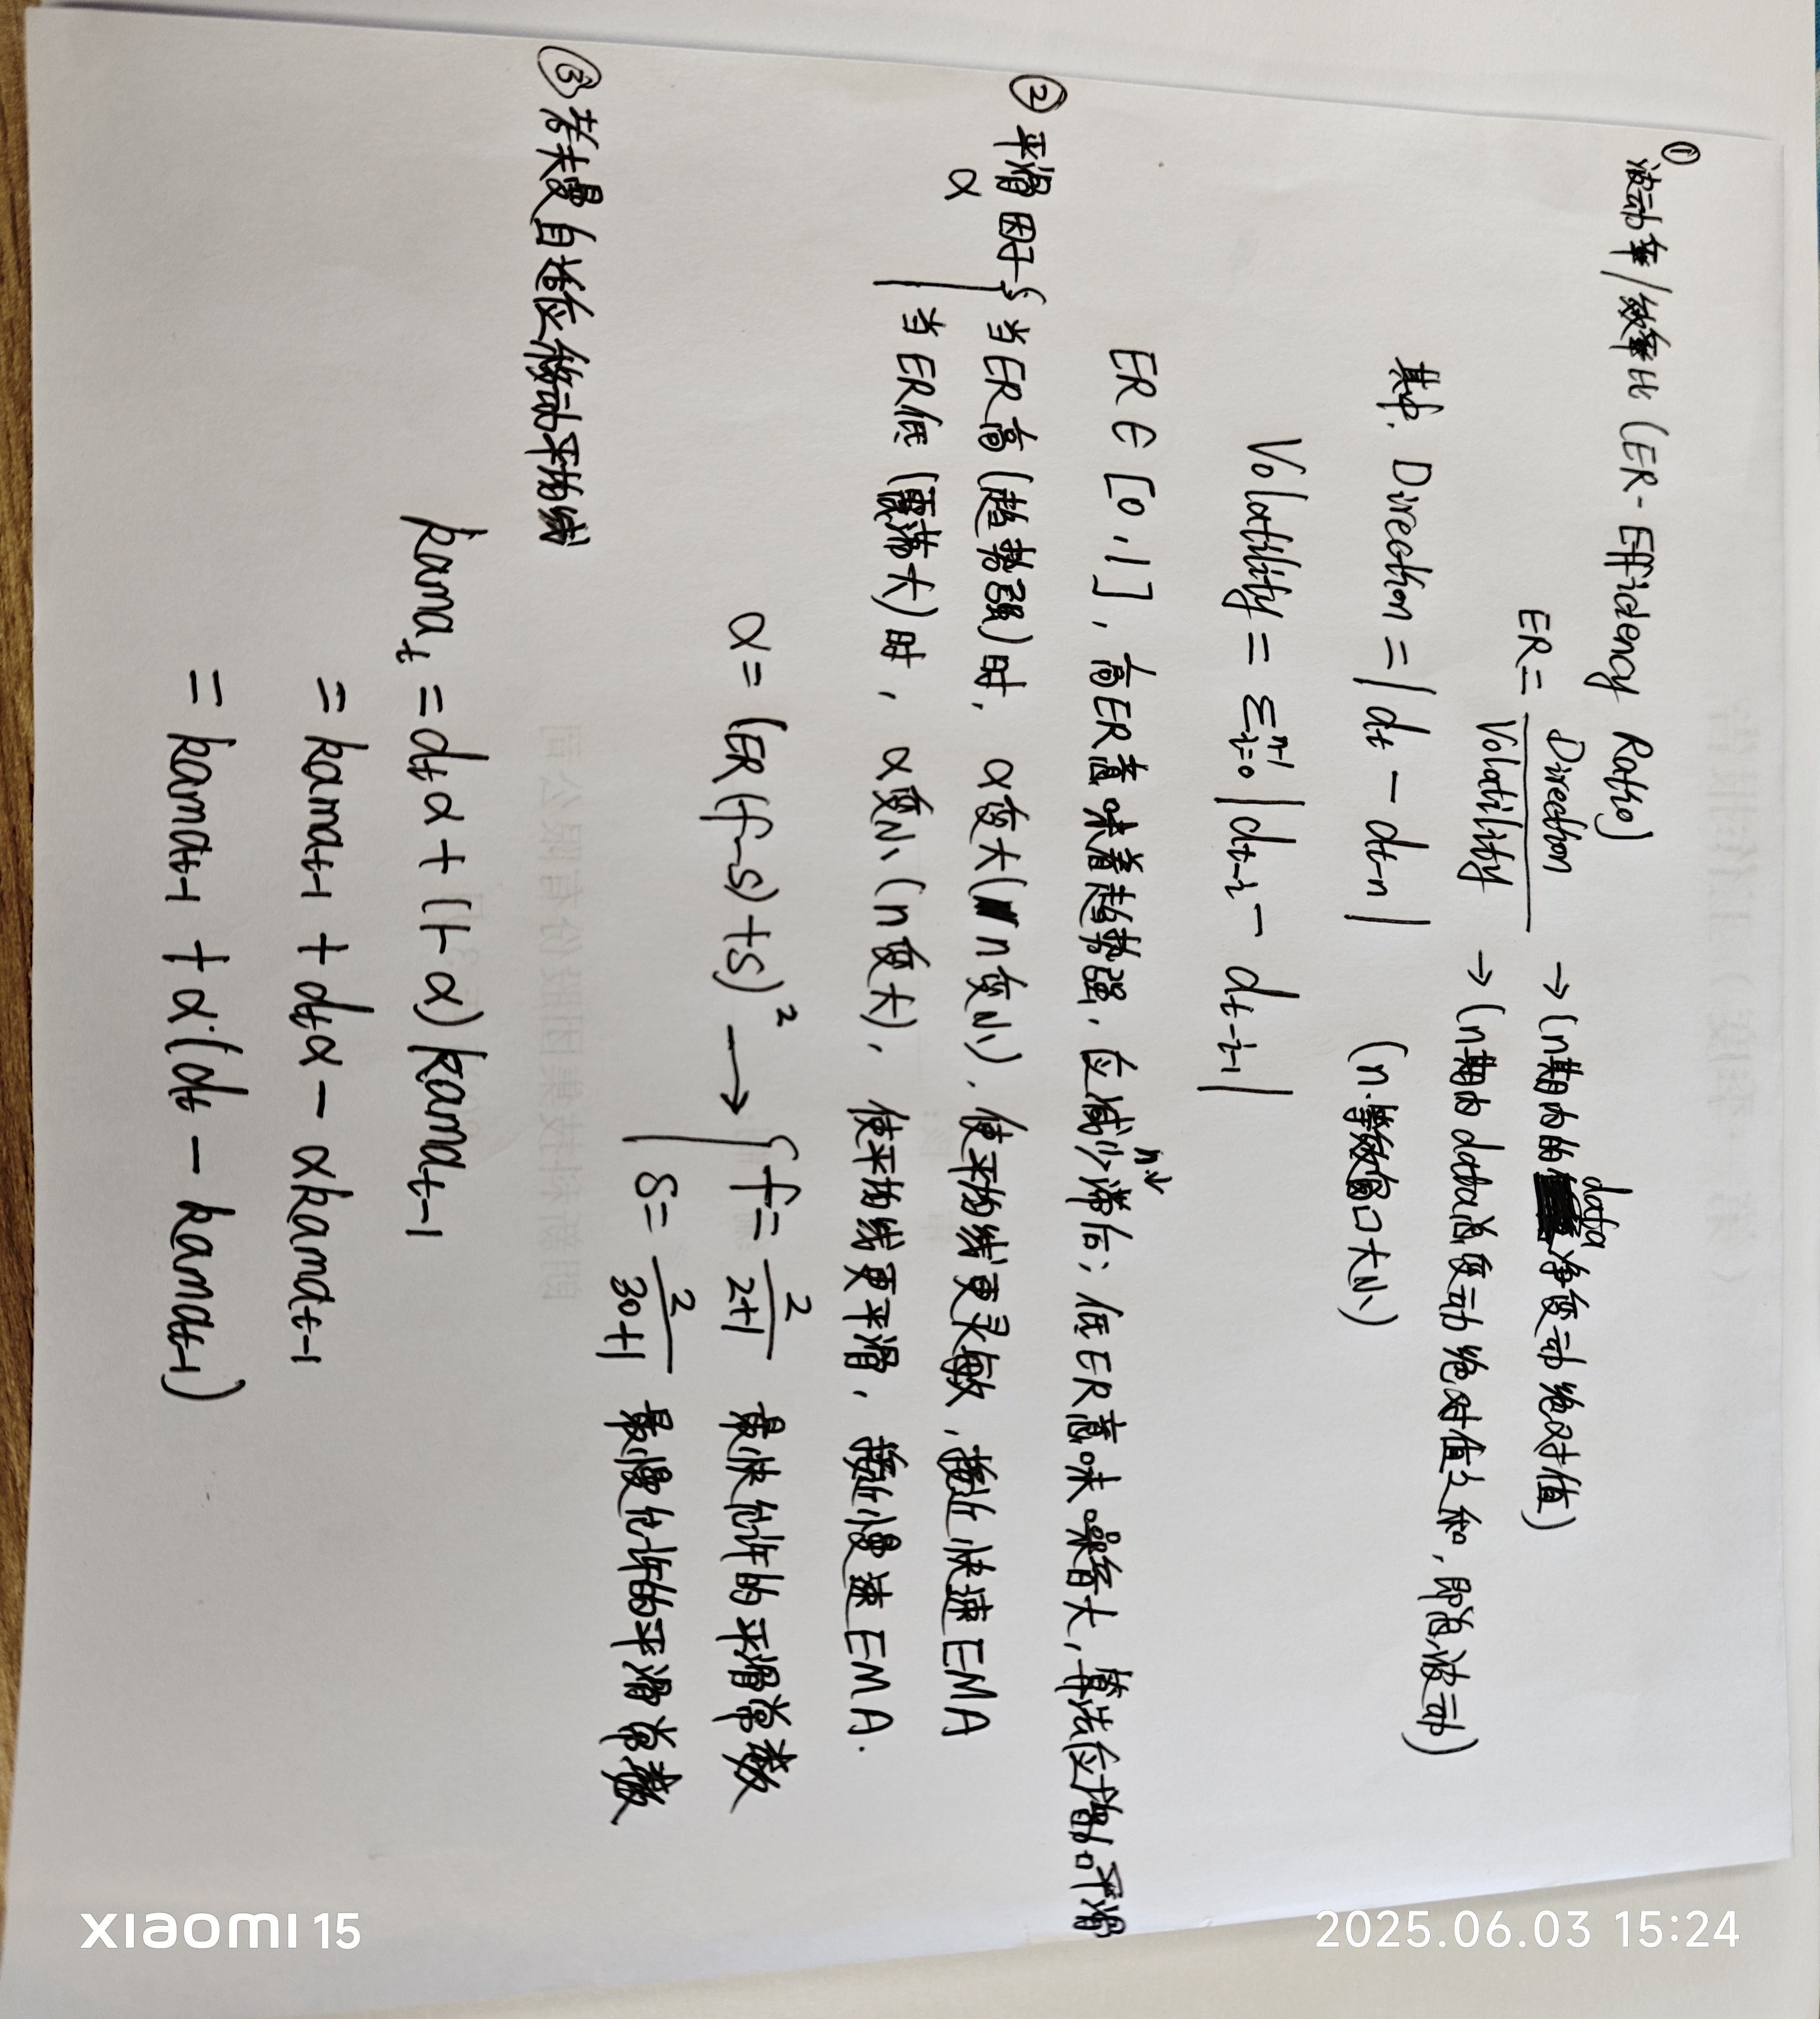 ① 波动率/效率比 (ER-Efficiency Ratio)
ER = Direction / Volatility
→ (n期内的data净变动绝对值)
→ (n期内data总变动绝对值之和, 即总波动)
其中, Direction = | dt - dt-n | (n: 等效窗口大小)
Volatility = Σ_{i=0}^{n-1} | dt-i - dt-i-1 |
ER ∈ [0,1], 高ER意味着趋势强, 应减少滞后; 低ER意味噪音大, 算法应增加平滑
n↓
② 平滑因子 α { 当ER高(趋势强)时, α变大(n变小), 使平均线更灵敏, 接近快速EMA
当ER低(震荡大)时, α变小(n变大), 使平均线更平滑, 接近慢速EMA.
α = (ER(f-s)+s)² → { f = 2/(2+1) 最快允许的平滑常数
s = 2/(30+1) 最慢允许的平滑常数
③ 考夫曼自适应移动平均线
kama_t = dt α + (1-α) kama_t-1
= kama_t-1 + dt α - α kama_t-1
= kama_t-1 + α·(dt - kama_t-1)
xiaomi 15
2025.06.03 15:24